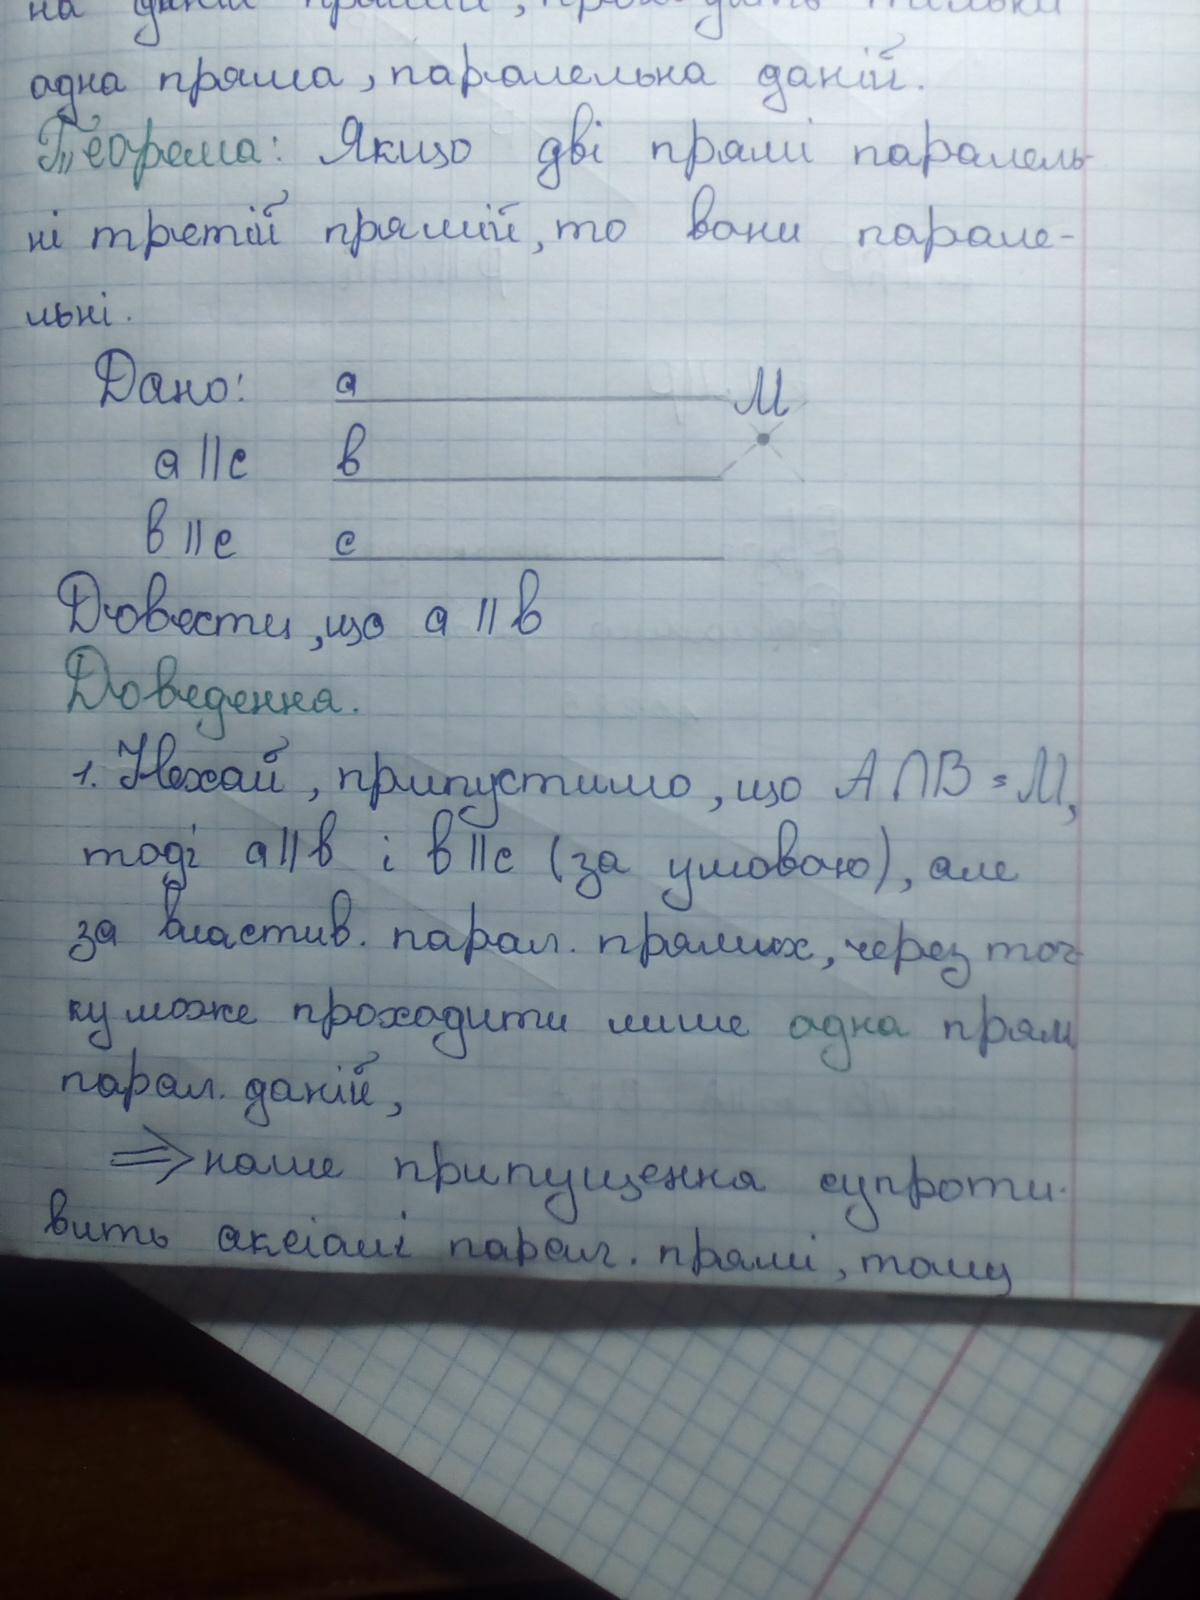 на даній прямій, проходить тільки
одна пряма, паралельна даній.
Теорема: Якщо дві прямі паралель-
ні третій прямій, то вони парале-
льні.
Дано: а М
а || с в
в || с с
Довести, що а || в
Доведення.
1. Нехай, припустимо, що А ∩ В = М,
тоді а || в і в || с (за умовою), але
за властив. парал. прямих, через точ-
ку може проходити лише одна прям
парал. даній,
⇒ наше припущення супроти-
вить аксіомі парал. прямі, тому